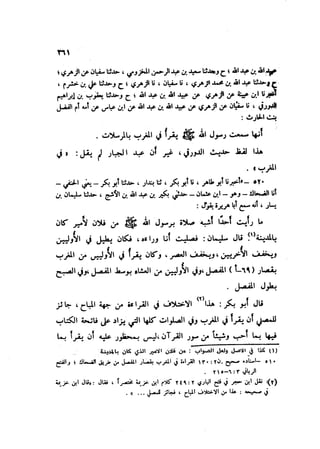 ٢٦١
عبد الله بن عبد الله ؛ ح وحدثنا سعيد بن عبد الرحمن المخزومي ، حدثنا سفيان عن الزهري ؛
ح وحدثنا عبد الله بن محمد الزهري ، نا سفيان ، نا الزهري ؛ ح وحدثنا علي بن خشرم ،
أخبرنا ابن عيينة عن الزهري عن عبيد الله بن عبد الله ؛ ح وحدثنا يعقوب بن إبراهيم
الدورقي ، نا سفيان عن الزهري عن عبيد الله بن عبد الله عن ابن عباس عن أمه أم الفضل
بنت الحارث :
أنها سمعت رسول الله ﷺ يقرأ في المغرب بالمرسلات .
هذا لفظ حديث الدورقي ، غير أن عبد الجبار لم يقل : « في
المغرب » .
٥٢٠ — أخبرنا أبو طاهر ، نا أبو بكر ، نا بندار ، حدثنا أبو بكر – يعني الحنفي –
أنا الضحاك – وهو – ابن عثمان – حدثني بكير بن عبد الله بن الأشج ، حدثنا سليمان بن
يسار ، أنه سمع أبا هريرة يقول :
ما رأيت أحداً أشبه صلاة برسول الله ﷺ من فلان لأمير كان
بالمدينة(١) قال سليمان : فصليت أنا وراءه ، فكان يطيل في الأوليين
ويخفف الأخريين ، ويخفف العصر ، وكان يقرأ في الأوليين من المغرب
بقصار (٦٩-أ) المفصل ، وفي الأوليين من العشاء بوسط المفصل ، وفي الصبح
بطول المفصل .
قال أبو بكر : هذا(٢) الاختلاف في القراءة من جهة المباح ، جائز
للمصلي أن يقرأ في المغرب وفي الصلوات كلها التي يزاد على فاتحة الكتاب
فيها بما أحب وشيئاً من سور القرآن ، ليس بمحظور عليه أن يقرأ بما
(١) كذا في الأصل ولعل الصواب : من فلان الأمير الذي كان بالمدينة
٥١٠ – إسناده صحيح . ن ٢ : ١٣٠ القراءة في المغرب بقصار المفصل من طريق الضحاك ؛ والفتح
الرباني ٣ : ٢١٥٠٦ .
(٢) نقل ابن حجر في فتح الباري ٢ : ٢٤٩ كلام ابن خزيمة مختصراً ، فقال : وقال ابن خزيمة
في صحيحه : هذا من الاختلاف المباح ، فجائز للمصلي ... » .